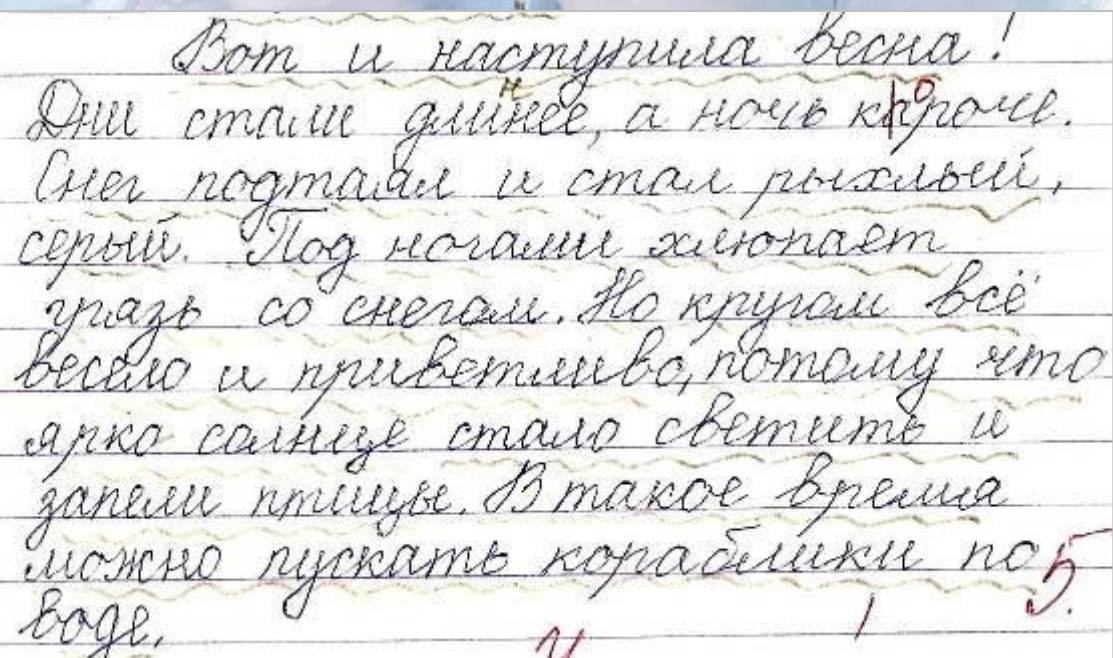 Вот и наступила весна!
Дни стали длинее, а ночь кароче.
Снег подтаял и стал рыхлый,
серый. Под ногами хлюпает
грязь со снегом. Но кругом всё
весело и приветливо, потому что
ярко солнце стало светить и
запели птицы. В такое время
можно пускать кораблики по
воде.
5.